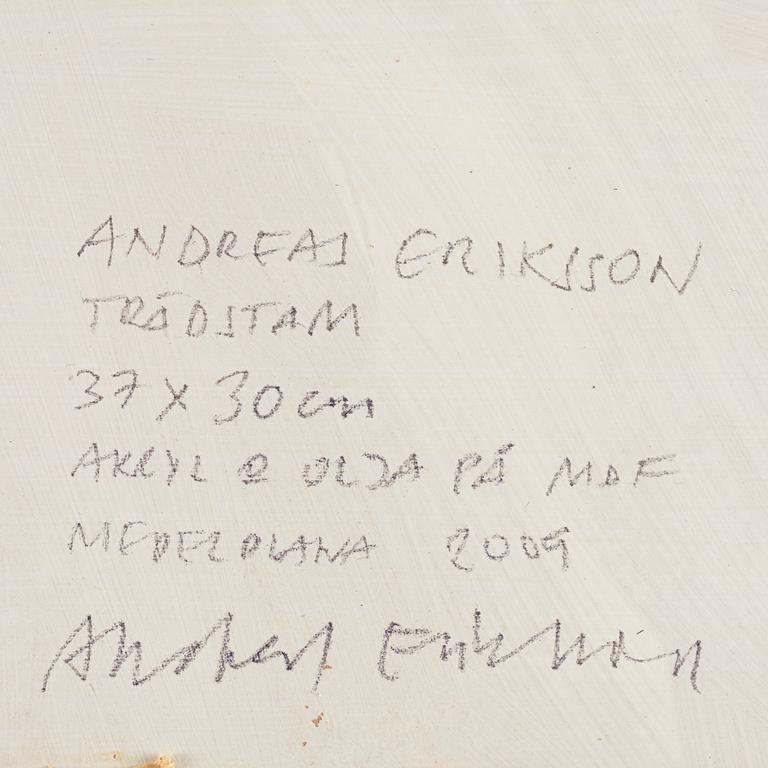 ANDREAS ERIKSSON
TRÄDSTAM
37 X 30 cm
AKRYL & OLJA PÅ MDF
MEDELPLANA 2009
Andreas Eriksson